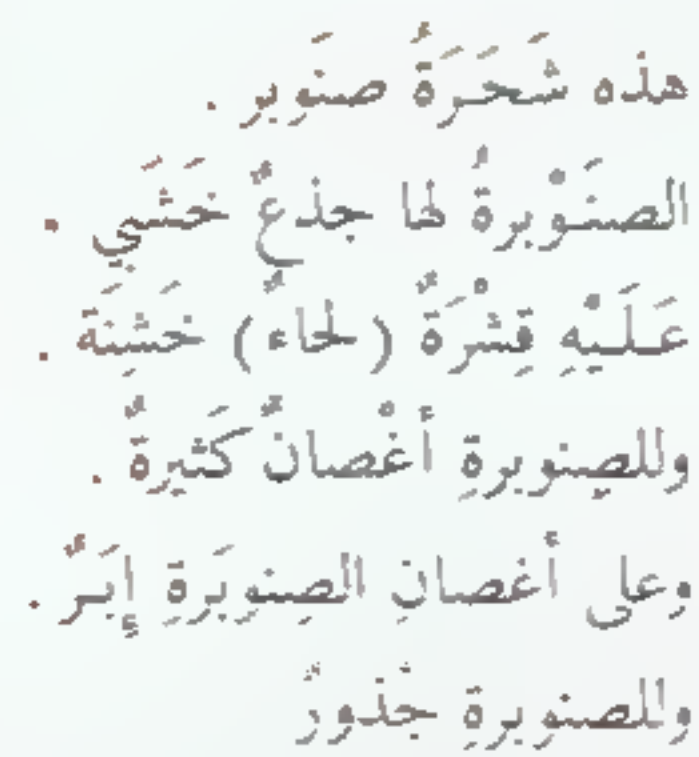 هذه شَجَرَةُ صنَوبر .
الصنَوْبرةُ لها جذعٌ خَشَبي .
عَلَيْهِ قِشْرَةٌ (لحاءٌ) خَشِنَة .
وللصِنوبرةِ أغْصانٌ كَثيرةٌ .
وعلى أغصانِ الصِنوبَرةِ إبَرٌ .
وللصنوبرةِ جُذورٌ